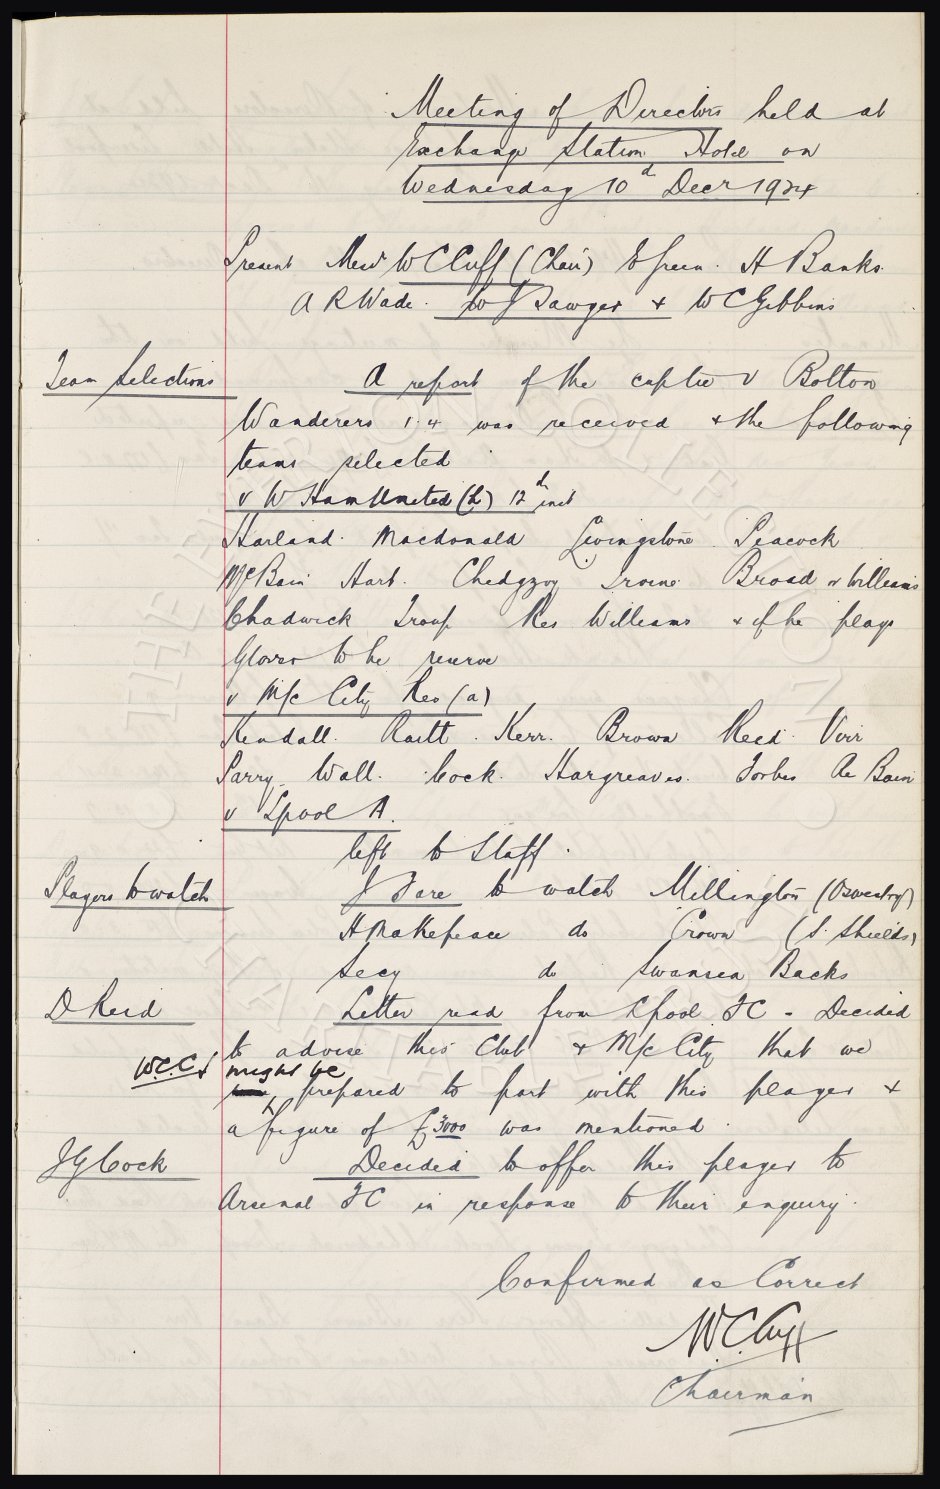 Meeting of Directors held at
Exchange Station Hotel on
Wednesday 10th Decr 1924
Present Messrs W C Cuff (Chair) E Green. H Banks.
A R Wade. W J Sawyer & W C Gibbins
Team Selections
A report of the cup tie v Bolton
Wanderers 1.4 was received & the following
teams selected
v W Ham United (h) 12th inst
Harland. Macdonald Livingstone. Peacock
McBain Hart. Chedgzoy Irvine. Broad or Williams
Chadwick Troup Res Williams & if he plays
Glover to be reserve
v M/c City Res (a)
Kendall. Raitt. Kerr. Brown Reid. Virr
Parry. Wall. Cock. Hargreaves. Forbes Res Bain
v L'pool A.
left to Staff.
Players to watch
J Fare to watch Millington (Oswestry)
H Makepeace do Crown (S. Shields)
Secy do Swansea Backs
D Reid
Letter read from L'pool FC - Decided
to advise this Club & M/c City that we
W.C.C. might be
prepared to part with this player &
a figure of £3000 was mentioned.
J G Cock
Decided to offer this player to
Arsenal FC in response to their enquiry.
Confirmed as Correct
W.C. Cuff
Chairman